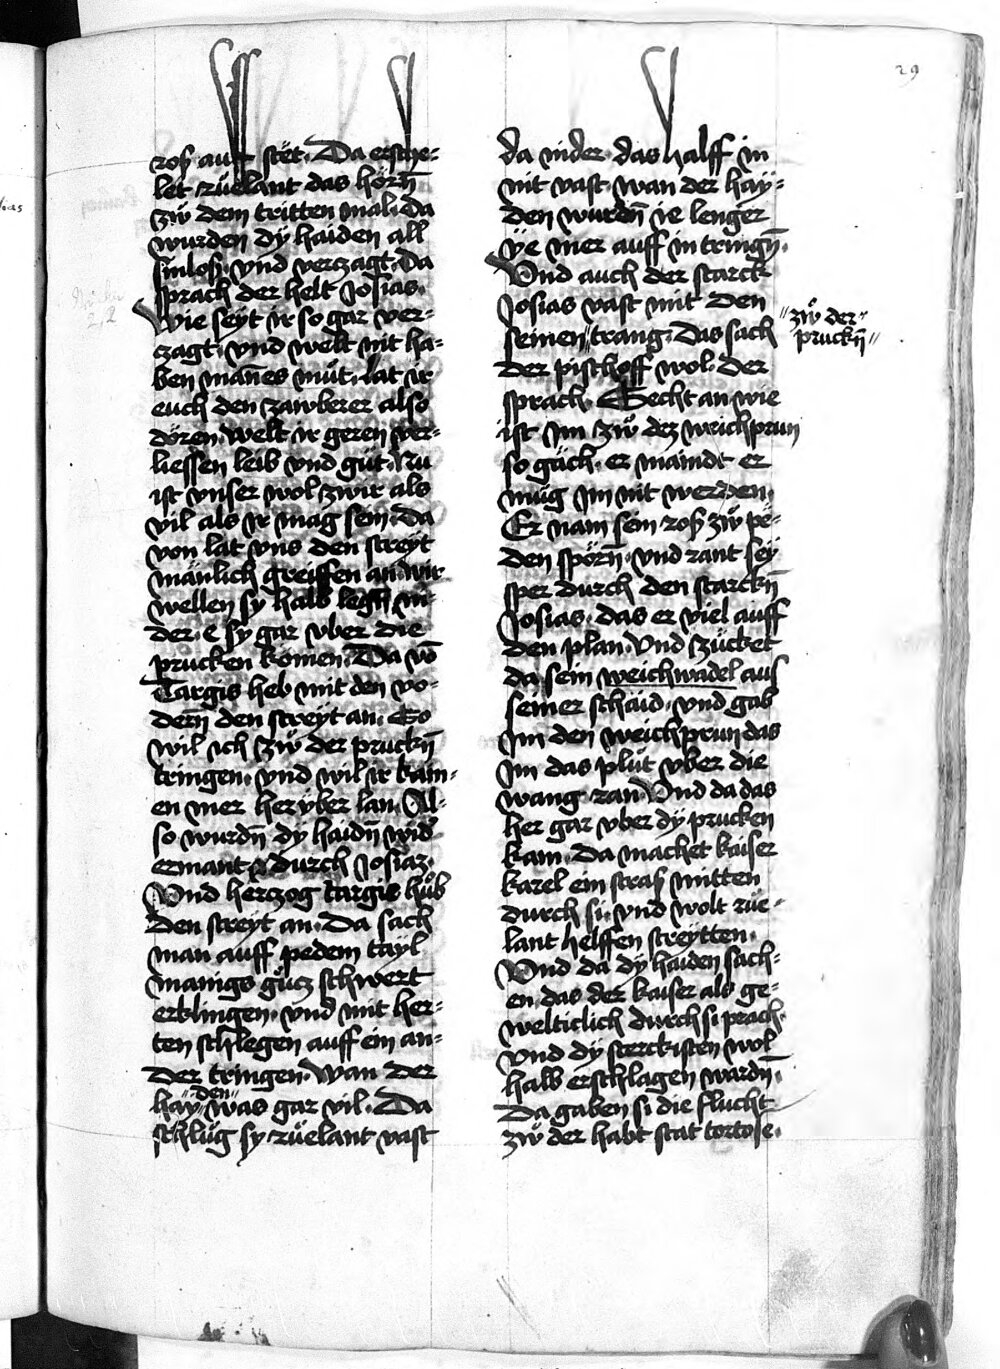 29
roß auff stët. Da ersche-
let rüelant das hörn̄
zů dem tritten mal. Da
wurden dÿ haiden all
sinloß. vnd verczagt. Da
sprach der helt Josias.
Wie seyt ir so gar ver-
zagt. vnd welt nit ha-
ben man̄es müt. lat ir
euch den zawberer also
dören. welt ir geren ver-
liessen leib vnd güt. Nu
ist vnser wol zwir als
vil als ir mag sein. Da
von lat vns den streyt
mänlich greiffen an. wir
wellen sy halb legn̄ ni
der. e sy gar vber die
prucken komen. Da vō
Targis heb mit den vo-
dern̄ den streyt an. So
wil ich zů der pruckn̄
tringen. vnd wil ir kain-
en mer her vber lan. Al-
so wurdn̄ dy haidn̄ wid̄
ermant durch Josiaz.
Vnd herczog targis hůb
den streyt an. Da sach
man auff pedem tayl
manigs gůcz schwert
erklingen. vnd mit her-
ten schlegen auff ein an-
der tringen. Wan der
hay"den" was gar vil. Da
schlüg sy rüelant vast
da nider. das halff in
nit vast. wan der haÿ-
den wurdn̄ ie lenger
ÿe mer auff in tringn̄.
Vnd auch der starck
Josias vast mit den
seinen "trang. Das sach
"zů der"
pruckn̄"
der pischoff wol. der
sprach. Secht an wie
ist im zů dez weichprun
so gäch. er maindt er
müg im nit werden.
Er nam sein roß zů pe-
den spörn̄. vnd rant seÿ
sper durch den starckn̄
Josias. das er viel auff
den plan. Vnd zücket
da sein weichwadel aus
seiner schaid. vnd gab
im den weichprun das
im das plüt vber die
wang ran. Vnd da das
her gar vber dÿ prucken
kam. Da machet kaiser
karel ein straß mitten
durch si. vnd wolt rüe-
lant helffen streytten.
Vnd da dÿ haiden sach-
en das der kaiser als ge-
welticlich durch si prach.
vnd dÿ sterckisten wol
halb erschlagen wardn̄.
Da gaben si die flucht
zů der habt stat tortose.